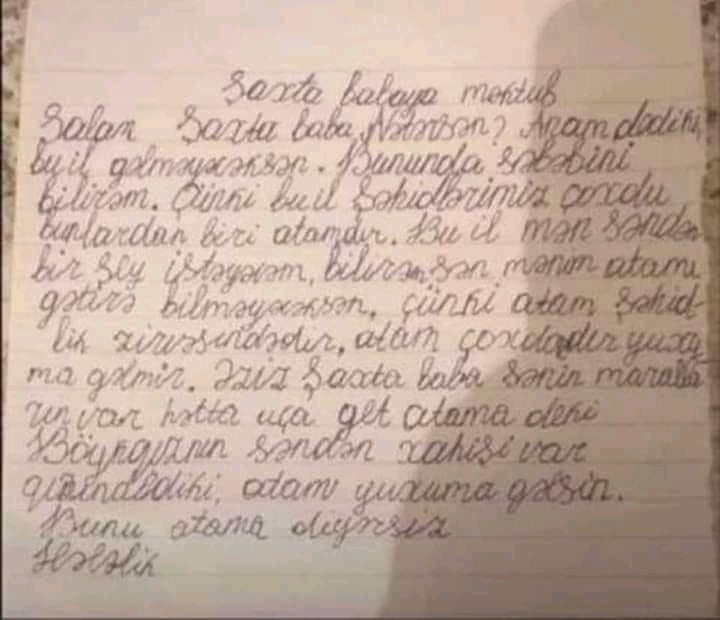 Şaxta babaya məktub
Salam Şaxta baba, Nətərsən? Anam dediki,
bu il gəlməyəcəksən. Bununda səbəbini
bilirəm. Çünki bu il Şəhidlərimiz çoxdu
bunlardan biri atamdır. Bu il mən səndən
bir şey istəyəcəm, bilirəm sən mənim atamı
gətirə bilməyəcəksən, çünki atam Şəhid-
lik zirvəsindədir, atam çoxdadır yuxu-
ma gəlmir. Əziz Şaxta baba sənin maralla
rın var hətta uça get atama deki
Böyükqızının səndən xahişi var
atam yuxuma gəlsin.
Bunu atama diyərsiz
Hələlik